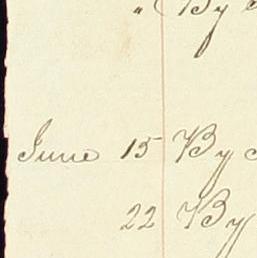 " By
June 15 By
22 By